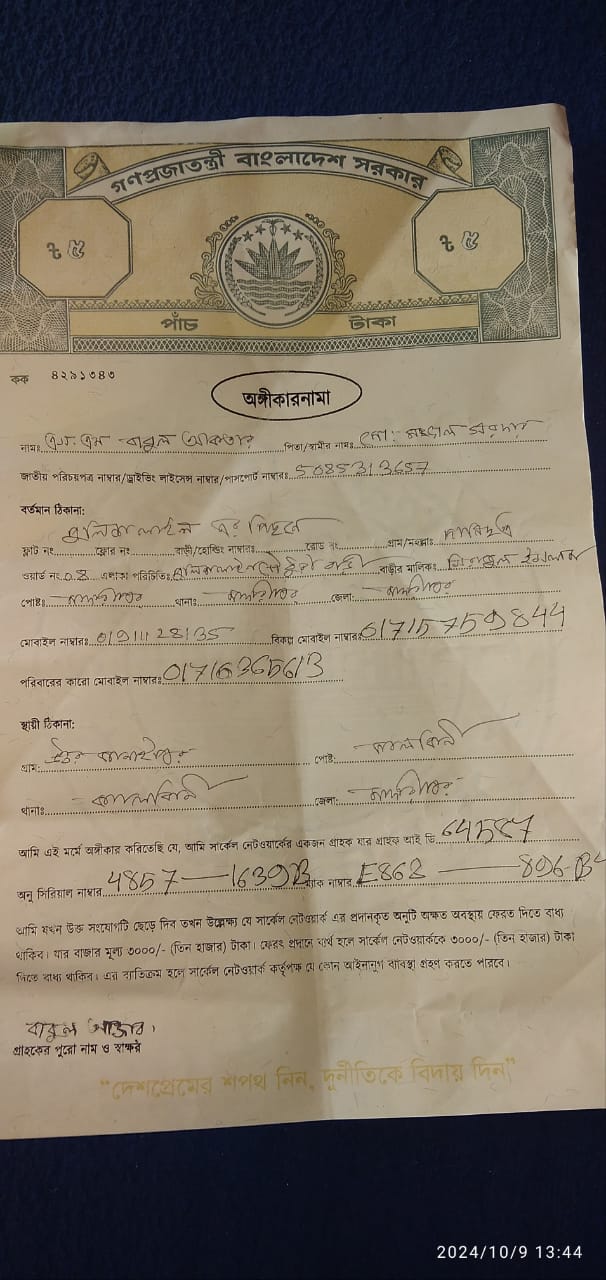 গণপ্রজাতন্ত্রী বাংলাদেশ সরকার
৳ ৫ ৳ ৫
পাঁচ টাকা
কক ৪২৯১৩৪৩
অঙ্গীকারনামা
নামঃ এস. এম বাবুল আকতার পিতা/স্বামীর নামঃ মোঃ সরদার
জাতীয় পরিচয়পত্র নাম্বার/ড্রাইভিং লাইসেন্স নাম্বার/পাসপোর্ট নাম্বারঃ 5085313657
বর্তমান ঠিকানা:
পুলিশ লাইন এর পিছনে
ফ্লাট নং ফ্লোর নং বাড়ী/হোল্ডিং নাম্বারঃ রোড নং গ্রাম/মহল্লাঃ
ওয়ার্ড নং 08 এলাকা পরিচিতিঃ বাড়ীর মালিকঃ ইসলাম
পোষ্টঃ মাদারীপুর থানাঃ মাদারীপুর জেলাঃ মাদারীপুর
মোবাইল নাম্বারঃ 01911128135 বিকল্প মোবাইল নাম্বারঃ 01715759844
পরিবারের কারো মোবাইল নাম্বারঃ 01716365613
স্থায়ী ঠিকানা:
গ্রাম: উত্তর কানাইপুর পোষ্ট: কালকিনী
থানাঃ কালকিনী জেলা: মাদারীপুর
আমি এই মর্মে অঙ্গীকার করিতেছি যে, আমি সার্কেল নেটওয়ার্কের একজন গ্রাহক যার গ্রাহক আই ডি 64587
অনু সিরিয়াল নাম্বার 4857 — 1639B ম্যাক নাম্বার E868 — 896-B
আমি যখন উক্ত সংযোগটি ছেড়ে দিব তখন উল্লেখ্য যে সার্কেল নেটওয়ার্ক এর প্রদানকৃত অনুটি অক্ষত অবস্থায় ফেরত দিতে বাধ্য
থাকিব। যার বাজার মূল্য ৩০০০/- (তিন হাজার) টাকা। ফেরৎ প্রদানে ব্যর্থ হলে সার্কেল নেটওয়ার্ককে ৩০০০/- (তিন হাজার) টাকা
দিতে বাধ্য থাকিব। এর ব্যতিক্রম হলে সার্কেল নেটওয়ার্ক কর্তৃপক্ষ যে কোন আইনানুগ ব্যবস্থা গ্রহণ করতে পারবে।
বাবুল আক্তার।
গ্রাহকের পুরো নাম ও স্বাক্ষর
"দেশপ্রেমের শপথ নিন, দুর্নীতিকে বিদায় দিন"
2024/10/9 13:44